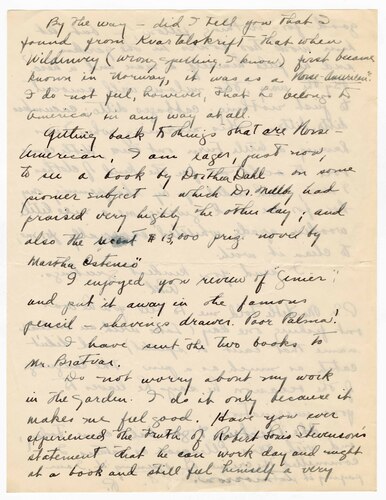 By the way - did I tell you that I
found from Kvartalskrift - that when
Wildenvey (wrong spelling, I know) first became
known in Norway, it was as a "Norse-American".
I do not feel, however, that he belongs to
America in any way at all.
Getting back to things that are Norse-
American, I am eager, just now,
to see a book by Dorthea Dahl - on some
pioneer subject - which Dr. Melby had
praised very highly the other day; and
also the recent $13,500 prize novel by
Martha Ostensö
I enjoyed your review of "Genier"
and put it away in the famous
pencil - shavings drawer. Poor Palma!
I have sent the two books to
Mr. Bratvar.
Do not worry about my work
in the garden. I do it only because it
makes me feel good. Have you ever
experienced the truth of Robert Louis Stevenson's
statement that he can work day and night
at a book and still feel himself a very